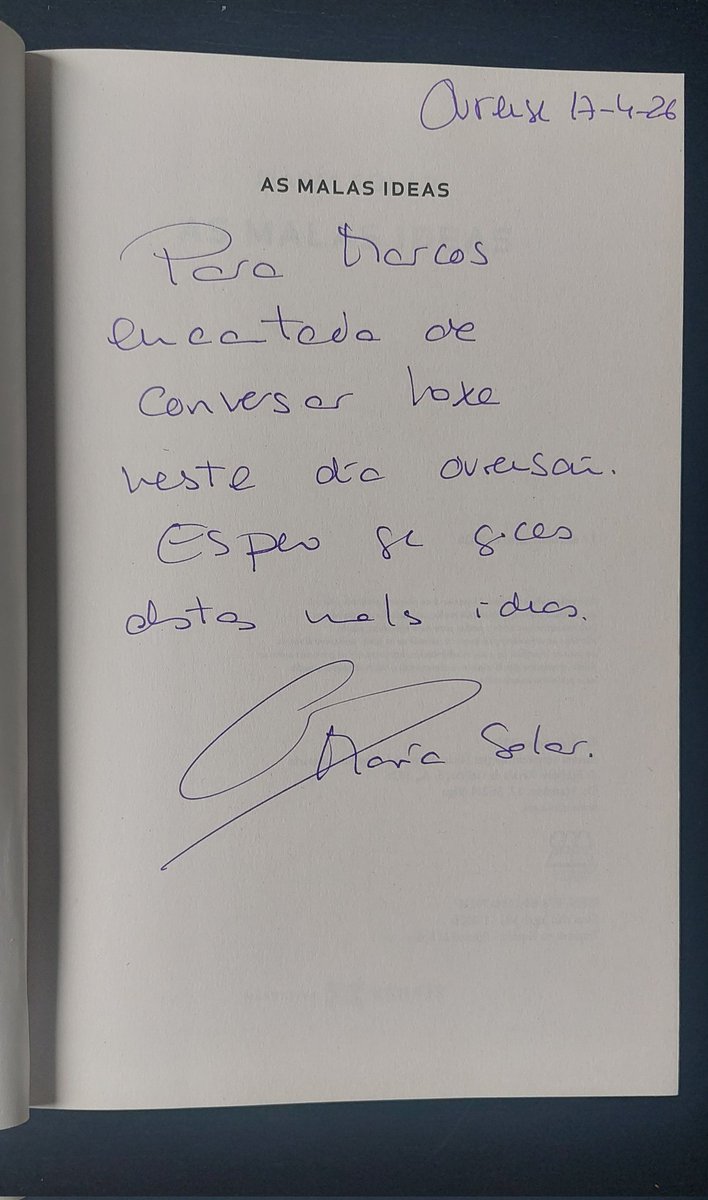 Ourense 17-4-26
AS MALAS IDEAS
Para Marcos
encantada de
conversar hoxe
neste día ourensán.
Espero que gices
destas malas ideas.
María Solar.